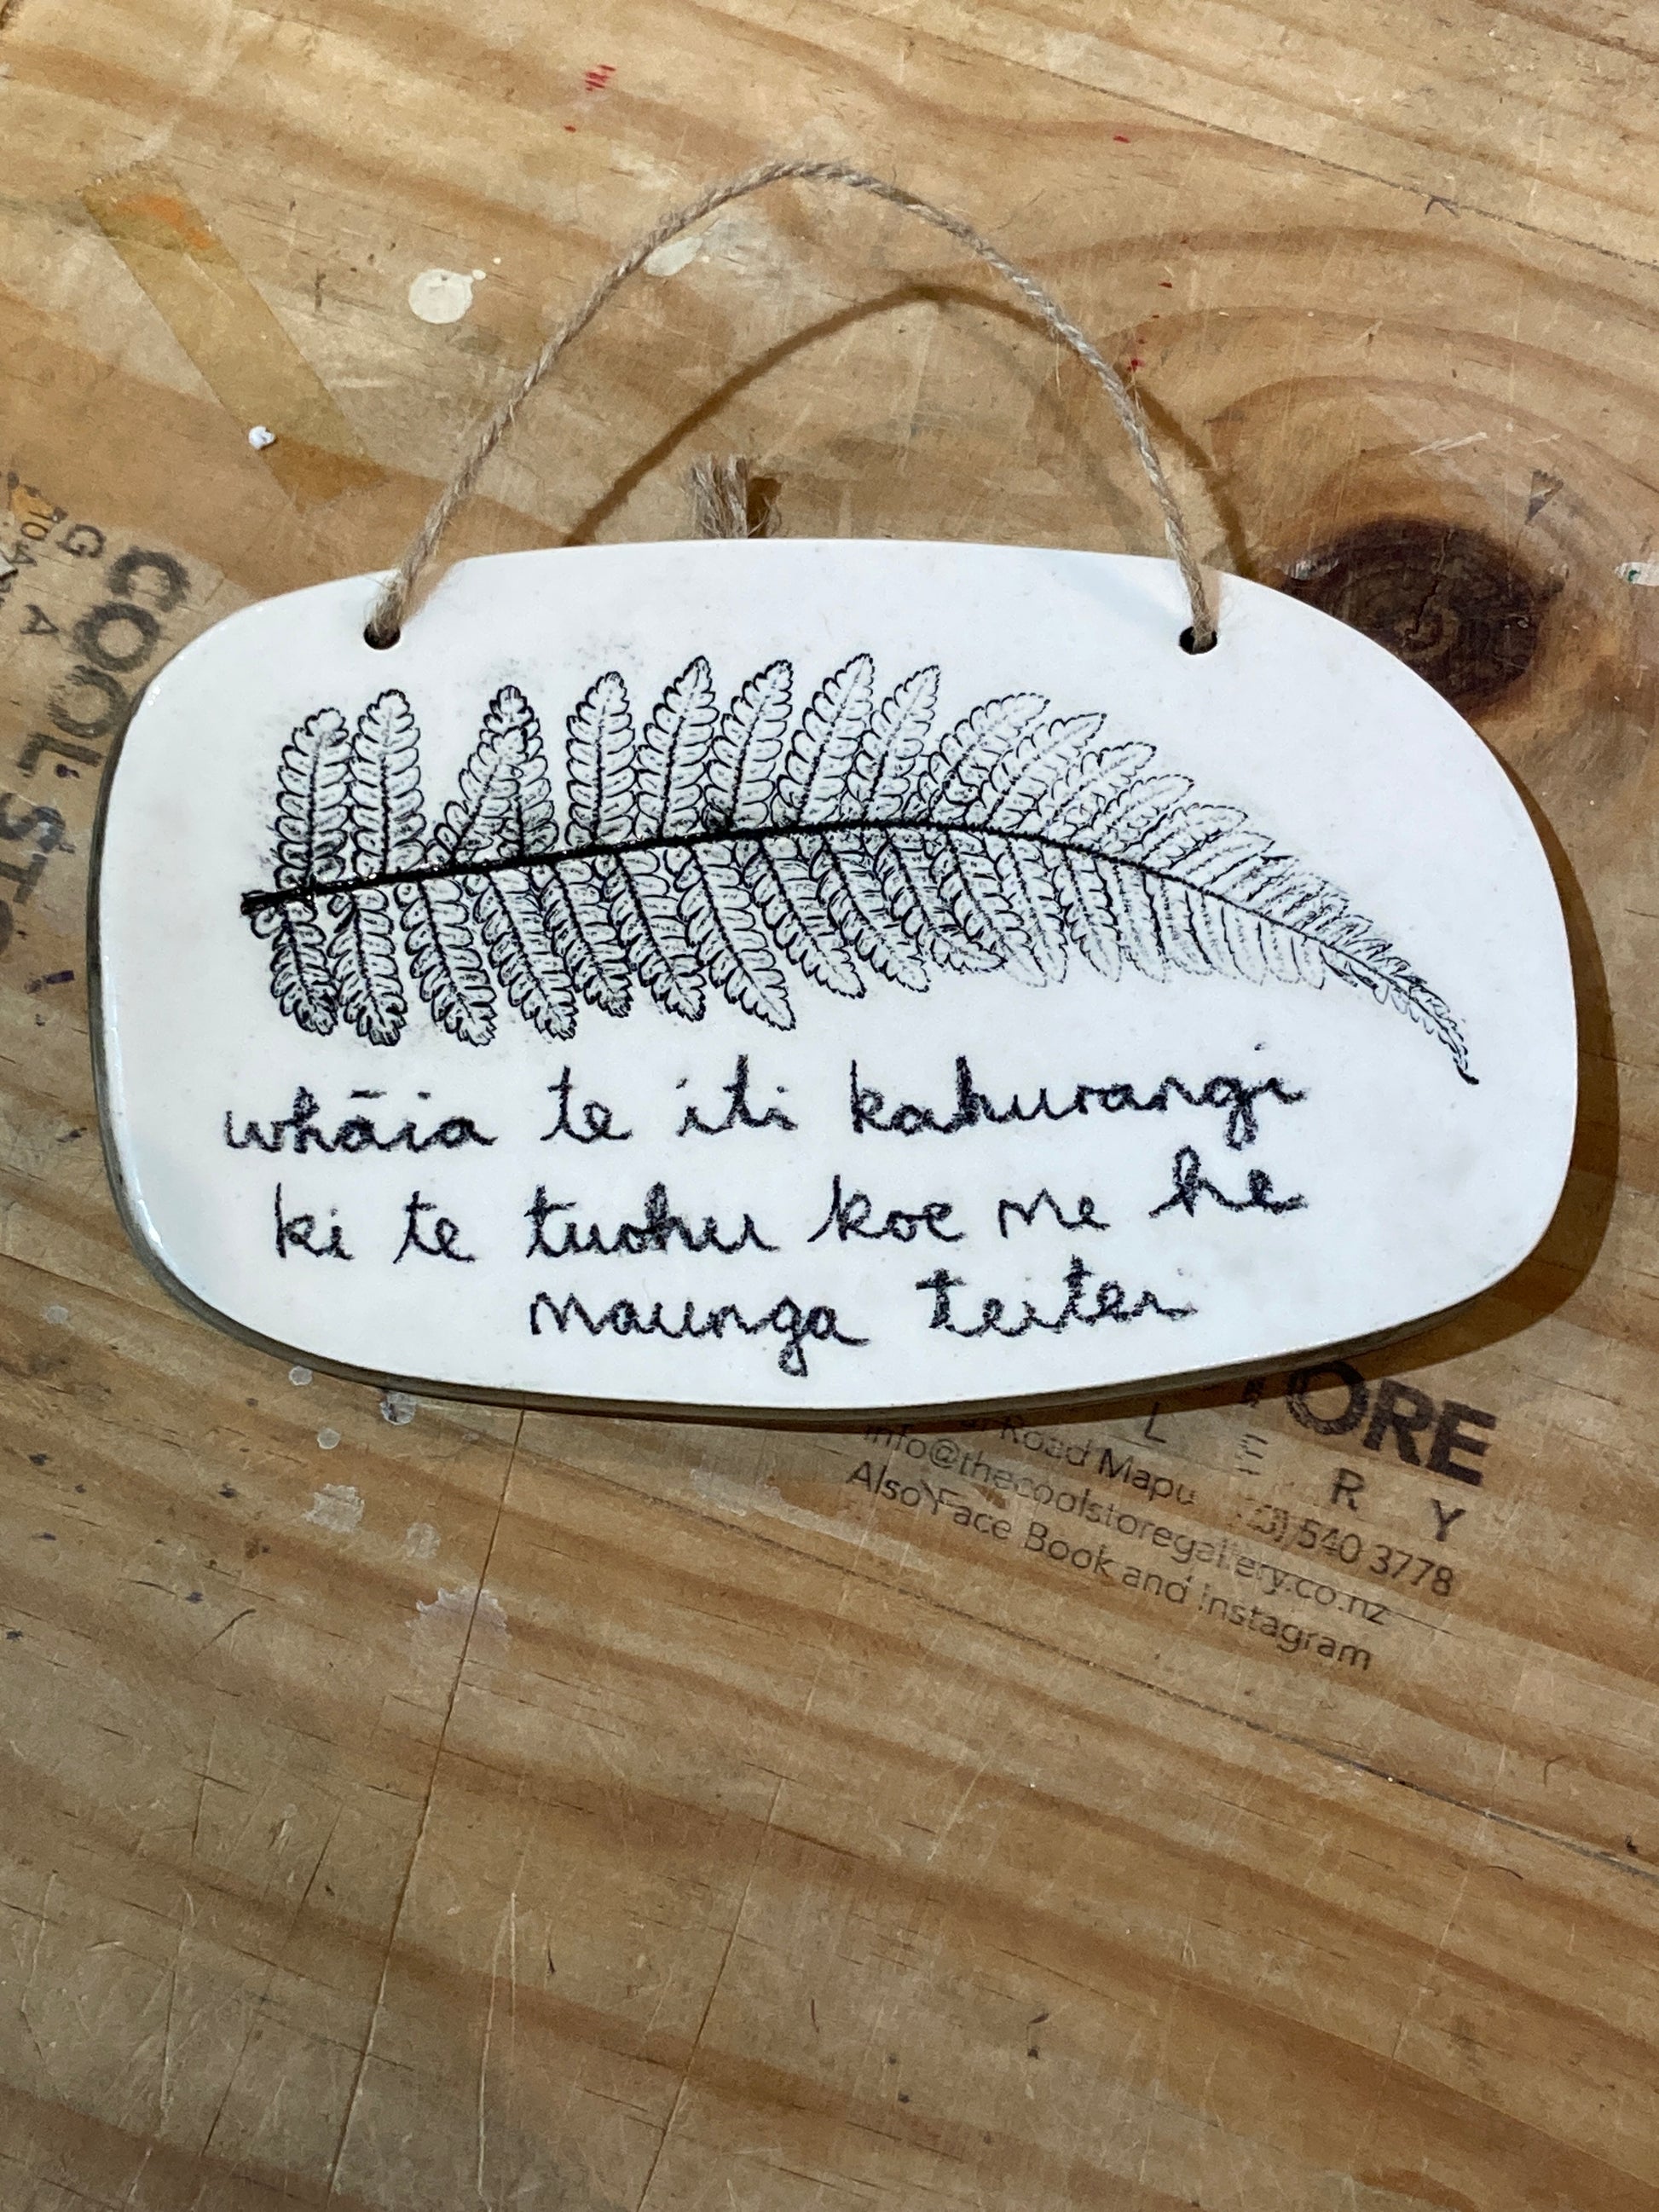 whāia te iti kahurangi
ki te tuohu koe me he
maunga teitei
COOL STO
G A
ORE
L E R Y
Road Mapu (3) 540 3778
info@thecoolstoregallery.co.nz
Also Face Book and Instagram